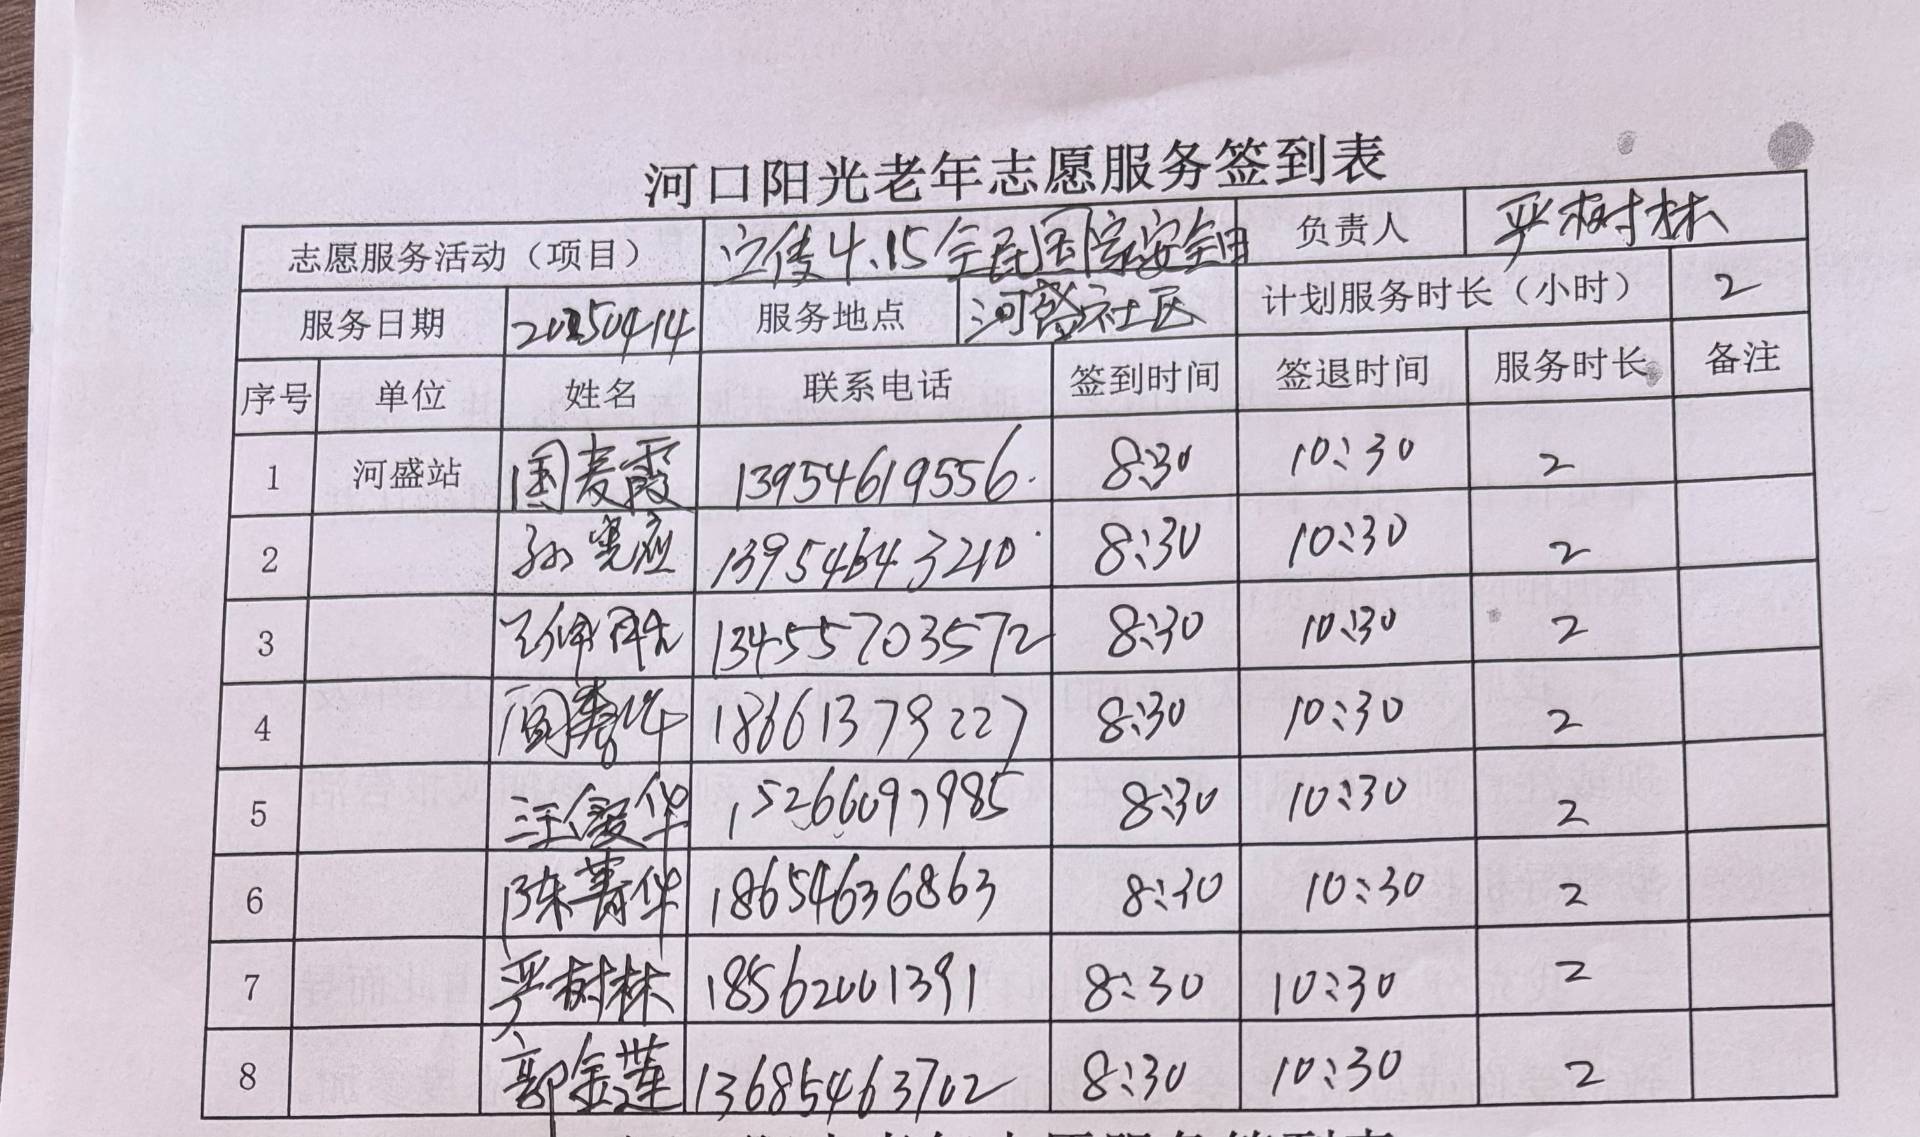 河口阳光老年志愿服务签到表
志愿服务活动（项目） 宣传4.15全民国家安全日 负责人 严树林
服务日期 20250414 服务地点 河盛社区 计划服务时长（小时） 2
序号 单位 姓名 联系电话 签到时间 签退时间 服务时长 备注
1 河盛站 国爱霞 13954619556. 8:30 10:30 2
2 13954643210 8:30 10:30 2
3 13455703572 8:30 10:30 2
4 18661379227 8:30 10:30 2
5 汪爱华 15266097985 8:30 10:30 2
6 陈菁华 18654636863 8:30 10:30 2
7 严树林 18562001391 8:30 10:30 2
8 郭金莲 13685463702 8:30 10:30 2